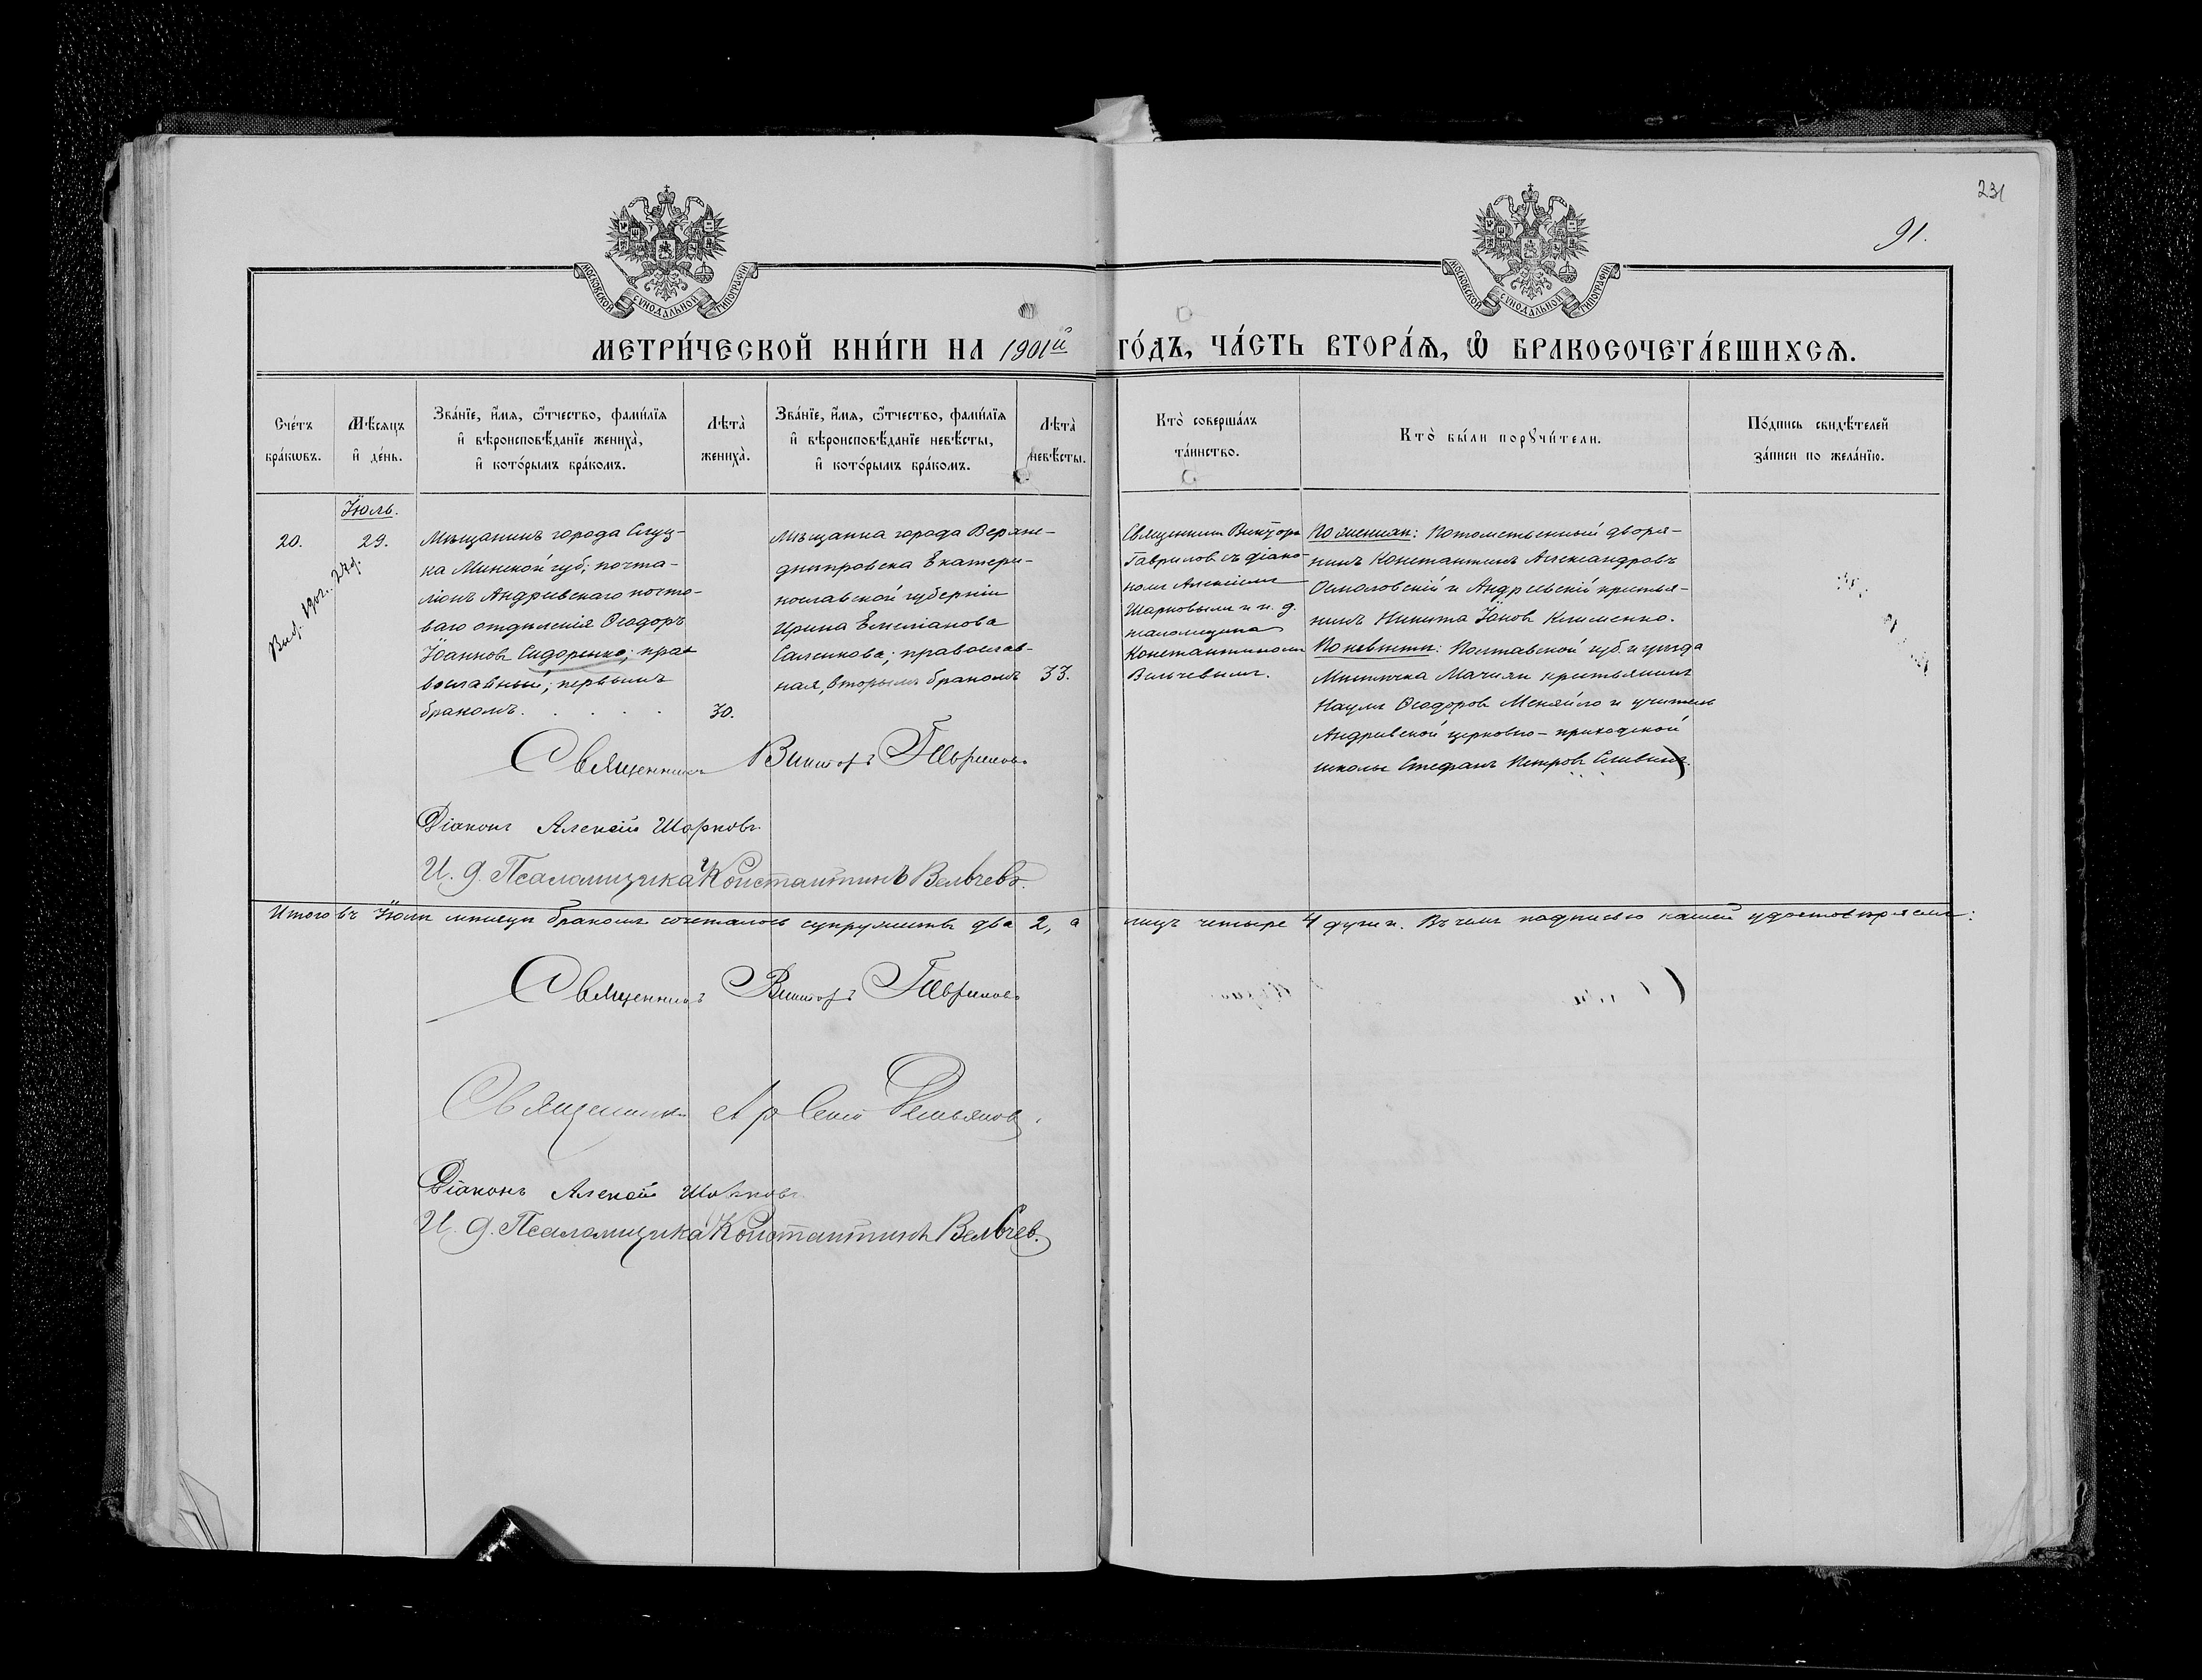 231
91.
МОСКОВСКОЙ СУНОДАЛЬНОЙ ТИПОГРАФІИ
МОСКОВСКОЙ СУНОДАЛЬНОЙ ТИПОГРАФІИ
МЕТРИ́ЧЕСКОЙ КНИ́ГИ НА 1901й ГО́ДЪ, ЧА́СТЬ ВТОРА́Ѧ, Ѽ БРАКОСОЧЕТА́ВШИХСѦ.
Сче́тъ
бра́кѡвъ.
Мѣ́сѧцъ
и҆ де́нь.
Зва́нїе, и҆́мѧ, ѻ҆́тчество, фамі́лїѧ
и҆ вѣроисповѣ́данїе жениха̀,
и҆ кото́рымъ бра́комъ.
Лѣ́та̀
жениха̀.
Зва́нїе, и҆́мѧ, ѻ҆́тчество, фамі́лїѧ
и҆ вѣроисповѣ́данїе невѣ́сты,
и҆ кото́рымъ бра́комъ.
Лѣ́та̀
невѣ́сты.
Кто̀ соверша́лъ
та́инство.
Кто̀ бы́ли порꙋчи́тели.
По́дпись свидѣ́телей
за́писи по жела́нїю.
Іюль.
20.
29.
Выд. 1902. 27 д.
Мѣщанинъ города Слуц-
ка Минской губ; почта-
ліонъ Андреевскаго почто-
ваго отдѣленія Ѳеодоръ
Іоанновъ Сидоренко; пра-
вославный; первымъ
бракомъ.
30.
Мѣщанка города Верхне-
днѣпровска Екатери-
нославской губерніи
Ирина Емеліанова
Саленкова; православ-
ная, вторымъ бракомъ
33.
Священникъ Викторъ
Гавриловъ съ діако-
номъ Алексіемъ
Шарковымъ и и. д.
псаломщика
Константиномъ
Вельчевымъ.
По женихѣ: Потомственный дворя-
нинъ Константинъ Александровъ
Осмоловскій и Андреевскій крестья-
нинъ Никита Іоновъ Клименко.
По невѣстѣ: Полтавской губ. и уѣзда
мѣстечка Мачихи крестьянинъ
Наумъ Ѳеодоровъ Меняйло и учитель
Андреевской церковно-приходской
школы Стефанъ Петровъ Сливинъ.
Священникъ Викторъ Гавриловъ
Діаконъ Алексій Шарковъ.
И. д. Псаломщика Константинъ Вельчевъ.
Итого въ Іюлѣ мѣсяцѣ бракомъ сочеталось супружествъ два 2, а лицъ четыре 4 души. Въ чемъ подписью нашей удостовѣряемъ:
Священникъ Викторъ Гавриловъ
Священникъ Арсеній
Діаконъ Алексій Шарковъ
И. д. Псаломщика Константинъ Вельчев.